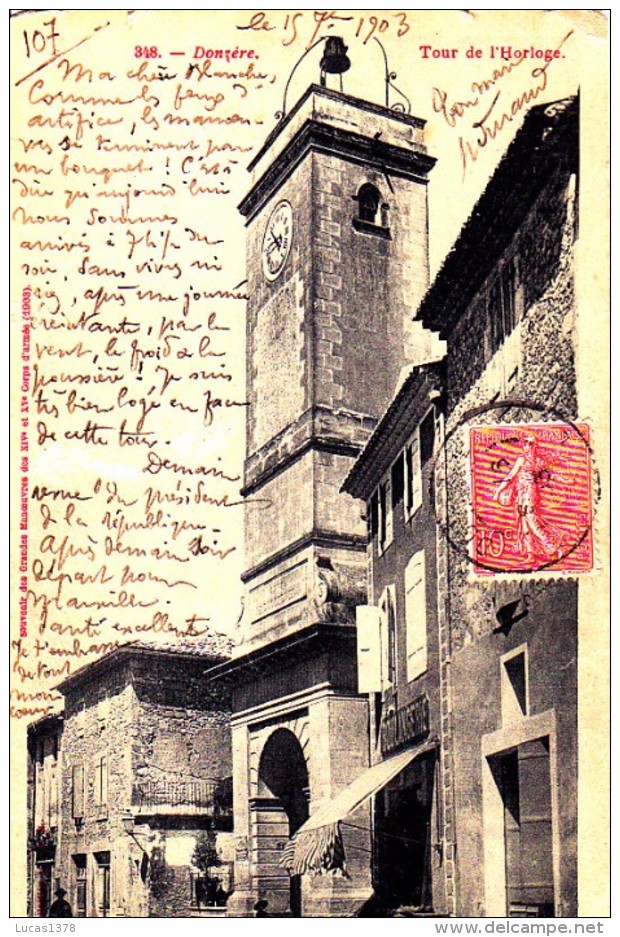 107
le 15 7bre 1903
348. — Donzère.
Tour de l'Horloge.
Ton mari
Durand
Ma chère Blanche,
Comme les feux d'
artifice, les manœu-
vres se terminent par
un bouquet ! C'est à
dire qu'aujourd'hui
nous sommes
arrivés à 7h ½ du
soir, sans vivres ni
après une journée
éreintante, par le
vent, le froid & la
poussière ! Je suis
très bien logé en face
de cette tour.
Demain
revue du président
de la république.
Après demain soir
départ pour
Marseille.
Santé excellente
Je t'embrasse
de tout
mon
cœur
Souvenir des Grandes Manœuvres des XIVe et XVe Corps d'armée (1903).
REPUBLIQUE FRANÇAISE
10c
POSTES
Lucas1378